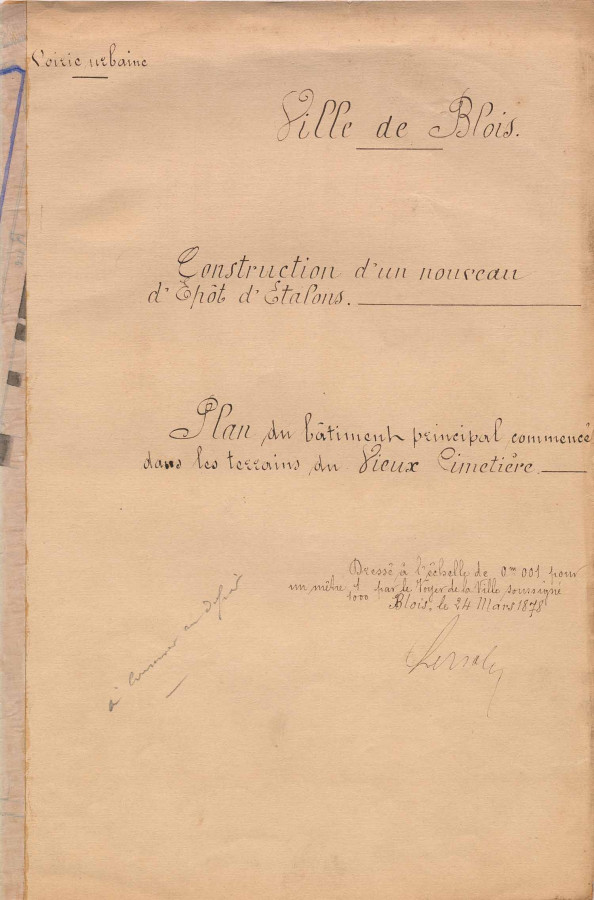 Voirie urbaine
Ville de Blois.
Construction d'un nouveau
d'Épôt d'Étalons.
Plan du bâtiment principal commencé
dans les terrains du Vieux Cimetière
Dressé à l'échelle de 0m 001 pour
un mètre 1/1000 par le Voyer de la Ville soussigné
Blois, le 24 Mars 1878
à conserver au